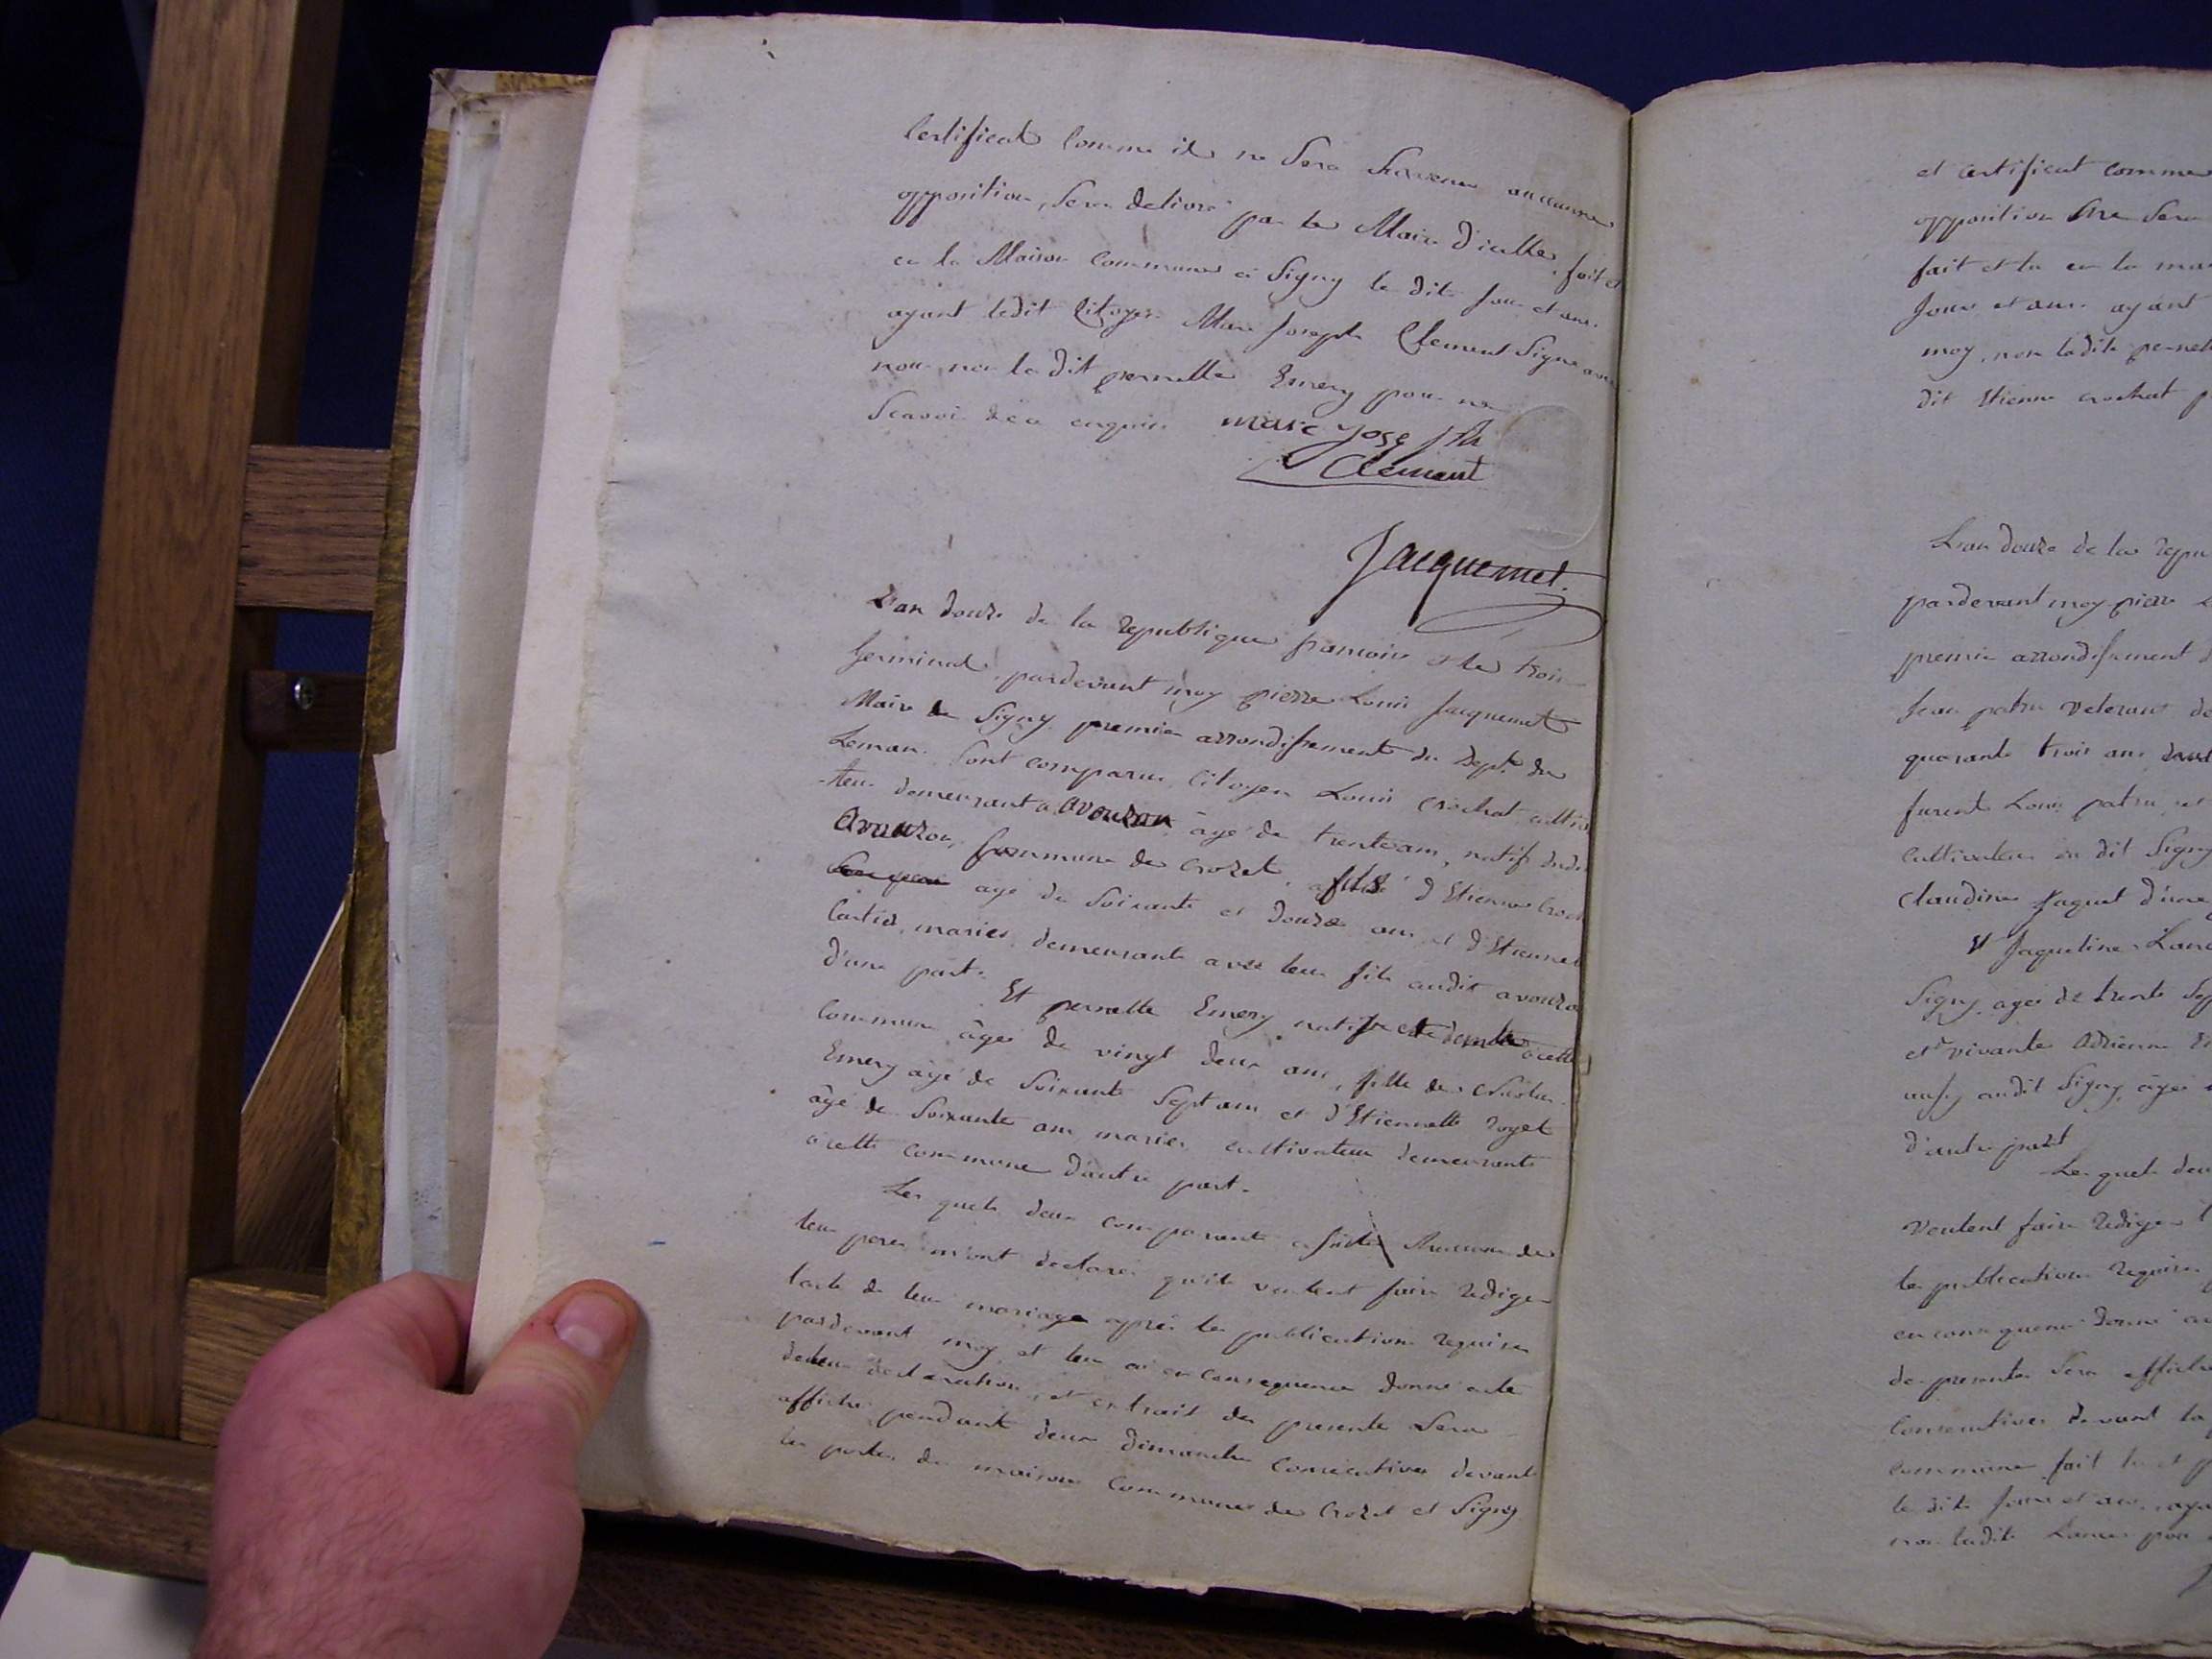 Certificat Comme il ne Sera Survenu aucunne
opposition, Sera delivré par le Maire d'icelle, fait et
en la Maison Commune à Signy le dit Jour et an.
ayant ledit Citoyen Marc Joseph Clement Signé avec
nous non la dit pernette Emery pour ne
Scavoir de ce enquise marc Joseph
Clement
Jacquemet
L'an douze de la republique francoise et le trois
Germinal, pardevant moy pierre Louis Jacquemet
Maire de Signy premier arrondissement du Dept. du
Leman. Sont comparus, Citoyen Louis Crochat cultiva
-teur demeurant a avouzon, âgé de trente ans, natif dudit
Avouzon, Commune de Crozet, fils d'Etienne Croch
agé de Soixante et douze ans et d'Etiennet
Cartier, mariés, demeurants avec leur fils audit avouzon
d'une part. Et pernette Emery native et demte à cette
Commune âgée de vingt deux ans, fille de Nicolas
Emery âgé de Soixante Sept ans et d'Etiennette Royet
âgé de Soixante ans mariés, cultivateur demeurants
à cette commune d'autre part.
Les quels deux comparants
leur peres m'ont declarés qu'ils veulent faire rediger
l'acte de leur mariage après les publications requises
pardevant moy, et leur ai en consequence donné acte
de leur declaration, et extrait des presente Sera
affiché pendant deux dimanche Consecutives devant
les portes des maisons Communes de Crozet et Signy
et certificat comme
opposition
fait et lu en la mai
Jour et an. ayant
moy, non ladite pernet
dit Etienne crochat p
L'an douze de la repu
pardevant moy pierre L
premier arrondissement d
Jean patru veterant de
quarante trois ans
furent Louis patru, et
Cultivateur au dit Signy
Claudine Jaquet d'une
Et Jaqueline Lanc
Signy, agée de trente Sep
et vivante Adrienne E
aussy audit Signy, âgée
d'autre part
Les quels deu
veulent faire rediger l
les publications requises
en consequence donné ac
des presentes Sera affiché
Consecutives devant la
commune fait lu et p
le dit Jour et an, aya
non ladite Lance pour